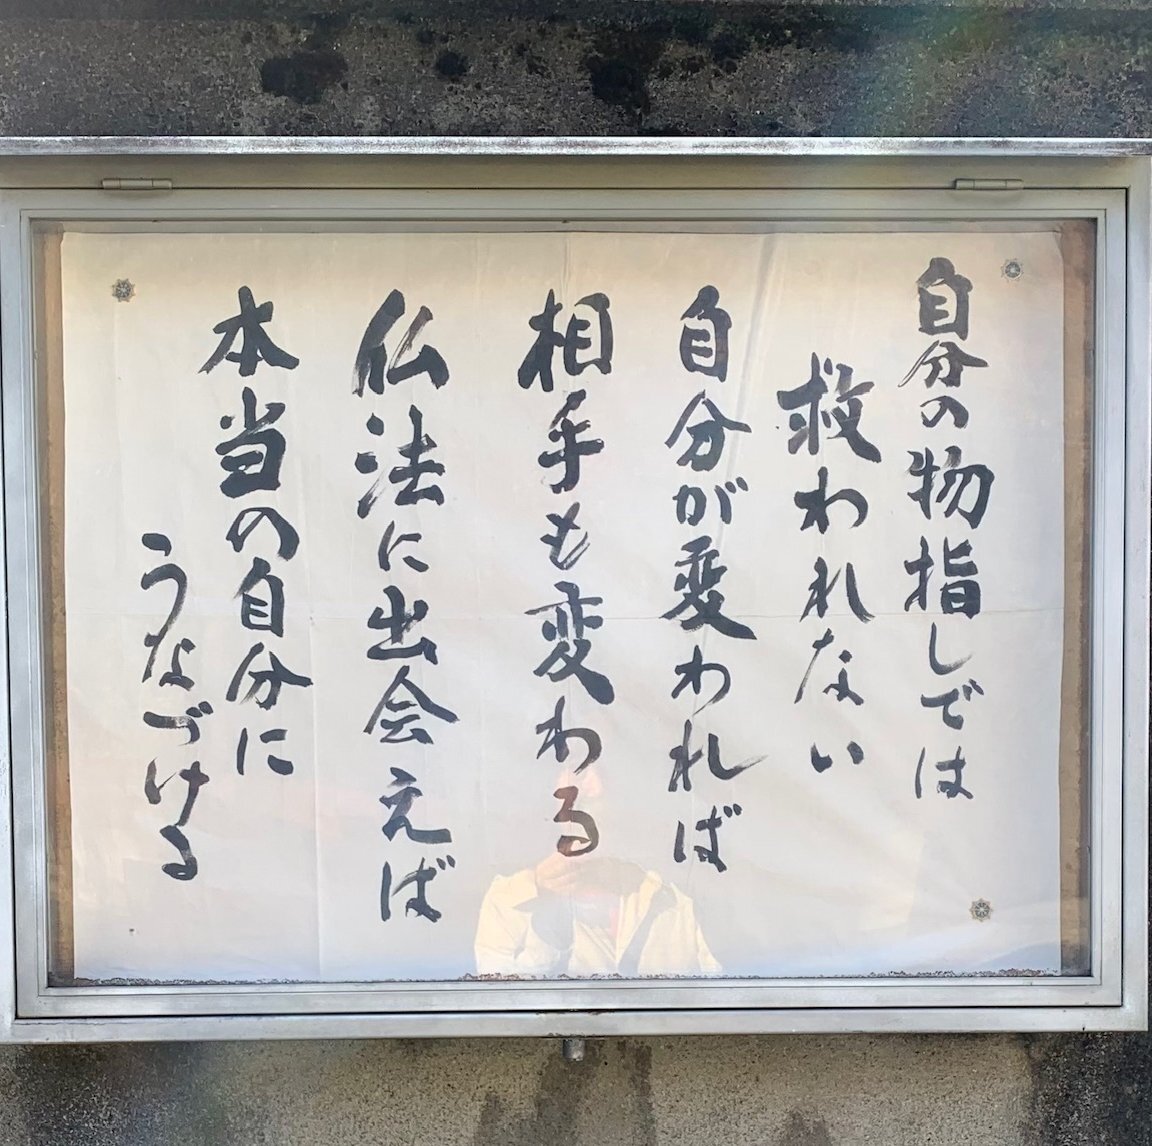 自分の物指しでは
救われない
自分が変われば
相手も変わる
仏法に出会えば
本当の自分に
うなづける